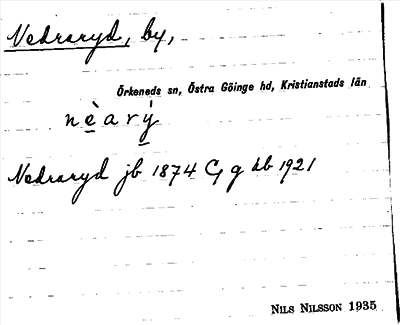 Nedraryd, by,
Örkeneds sn, Östra Göinge hd, Kristianstads län
nèarý
Nedraryd jb 1874 G g kb 1921
NILS NILSSON 1935